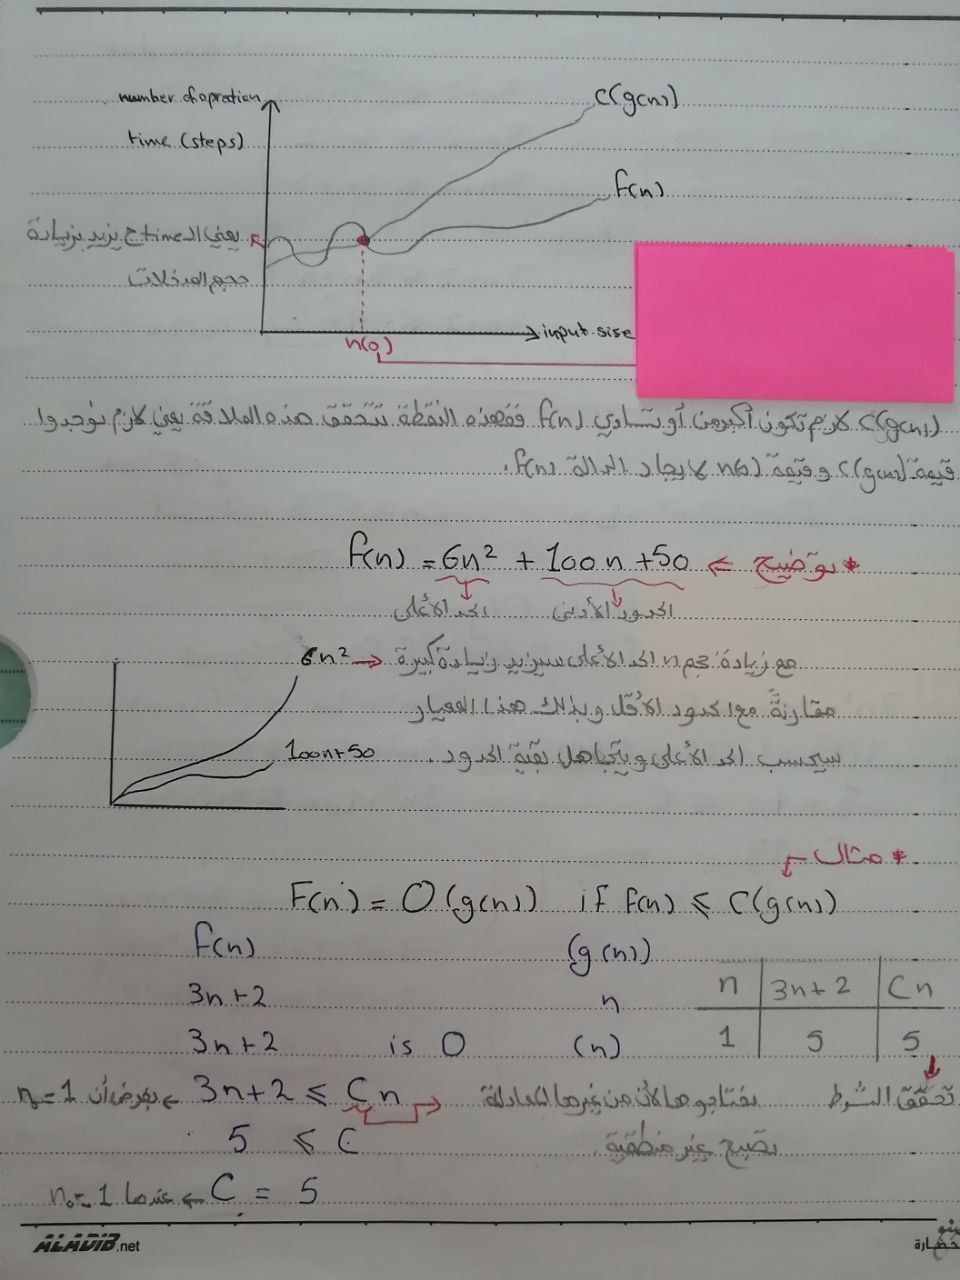 number of opration
time (steps)
c(g(n))
f(n)
يعني الـ time ح يزيد بزيادة
حجم المدخلات
input sise
n(0)
c(g(n)) لازم تكون أكبر من أو تساوي f(n) فهذه النقطة تتحقق هذه العلاقة يعني لازم نوجدوا
قيمة c(g(n)) و قيمة n(0) لإيجاد الدالة f(n).
* توضيح ⇐ f(n) = 6n² + 100n + 50
الحد الأعلى الحدود الأدنى
6n² → مع زيادة حجم n الحد الأعلى سيزيد زيادة كبيرة
مقارنةً مع الحدود الأقل وبذلك هذا المعيار
100n+50
سيحسب الحد الأعلى ويتجاهل بقية الحدود.
* مثال
F(n) = O(g(n)) if f(n) ≤ C(g(n))
f(n) (g(n))
n 3n+2 Cn
3n+2 n
1 5 5
3n+2 is O (n)
تحقق الشرط
3n+2 ≤ Cn ← بفرض أن n₀=1
نحتاجوها لأن من غيرها المعادلة
تصبح غير منطقية.
5 ≤ C
C = 5 ← عندما n₀=1
ALADIB.net